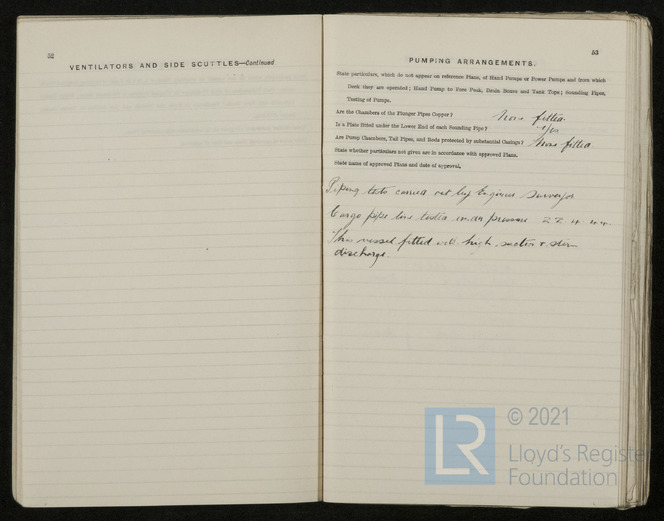 52
VENTILATORS AND SIDE SCUTTLES—Continued
53
PUMPING ARRANGEMENTS.
State particulars, which do not appear on reference Plans, of Hand Pumps or Power Pumps and from which
Deck they are operated; Hand Pump to Fore Peak, Drain Boxes and Tank Tops; Sounding Pipes,
Testing of Pumps.
Are the Chambers of the Plunger Pipes Copper? None fitted.
Is a Plate fitted under the Lower End of each Sounding Pipe? Yes
Are Pump Chambers, Tail Pipes, and Rods protected by substantial Casings? None fitted
State whether particulars not given are in accordance with approved Plans.
State name of approved Plans and date of approval.
Piping tests carried out by Engineer Surveyor
Cargo pipe line tested pressure 22. 4. 44.
This vessel fitted with high suction & stern
discharge.
LR
© 2021
Lloyd's Register
Foundation